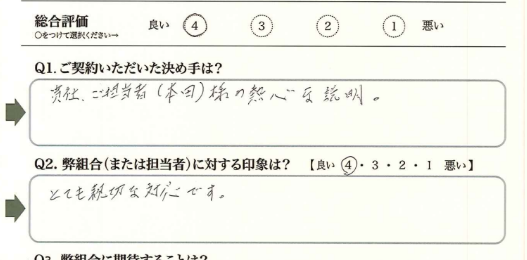 総合評価 良い ④ ③ ② ① 悪い
○をつけて選択ください→
Q1.ご契約いただいた決め手は?
貴社、ご担当者(本田)様の熱心な説明。
Q2. 弊組合(または担当者)に対する印象は? 【良い ④・3・2・1 悪い】
とても親切な対応です。
Q3. 弊組合に期待することは?